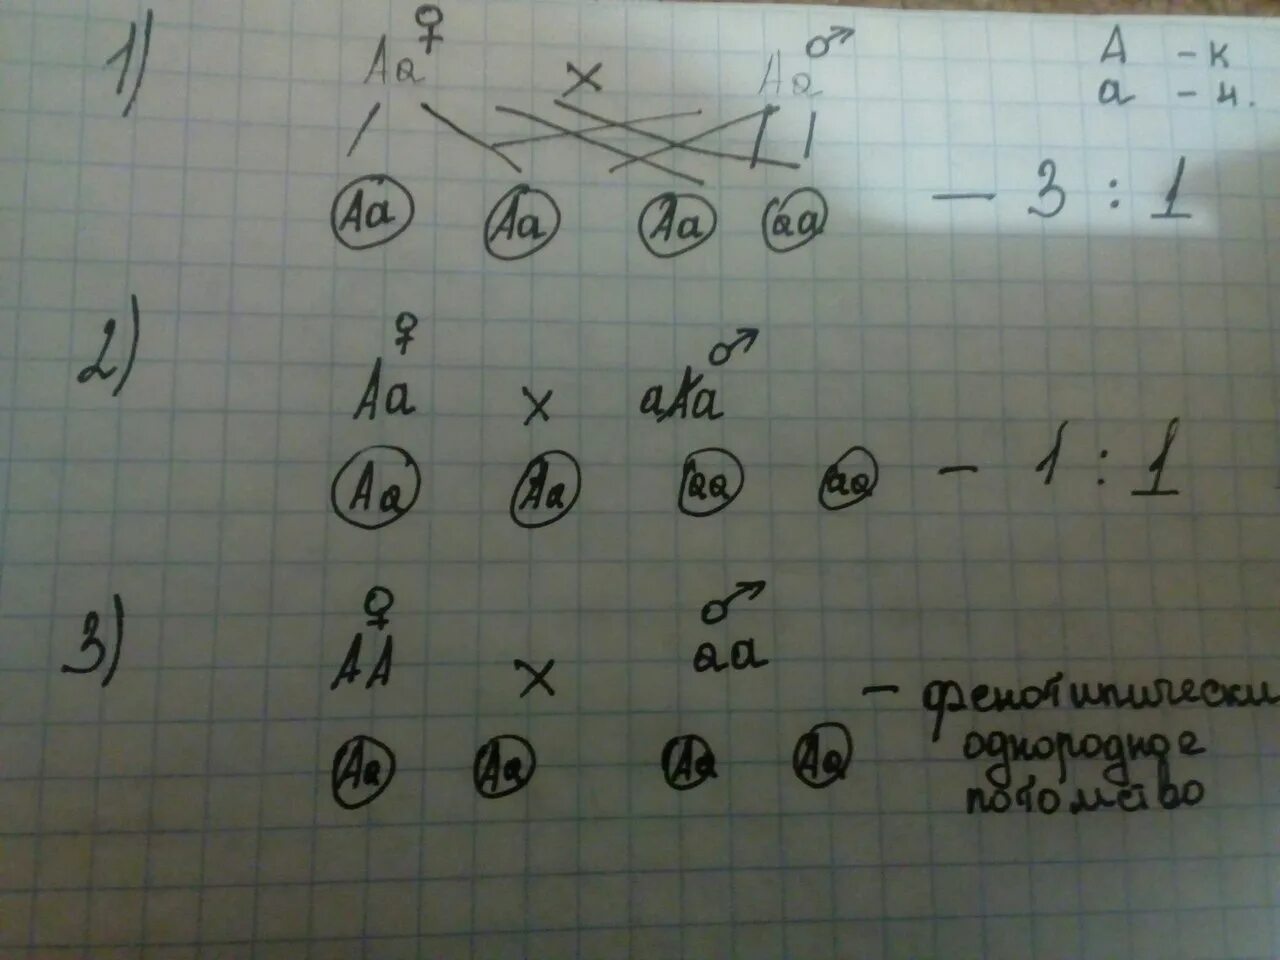 1) Aa ♀ × Aa ♂ A - к
a - ч.
Aa Aa Aa aa - 3 : 1
2) ♀ ♂
Aa × aa
Aa Aa aa aa - 1 : 1
3) ♀ ♂
AA × aa
Aa Aa Aa Aa - фенотипически
однородное
потомство